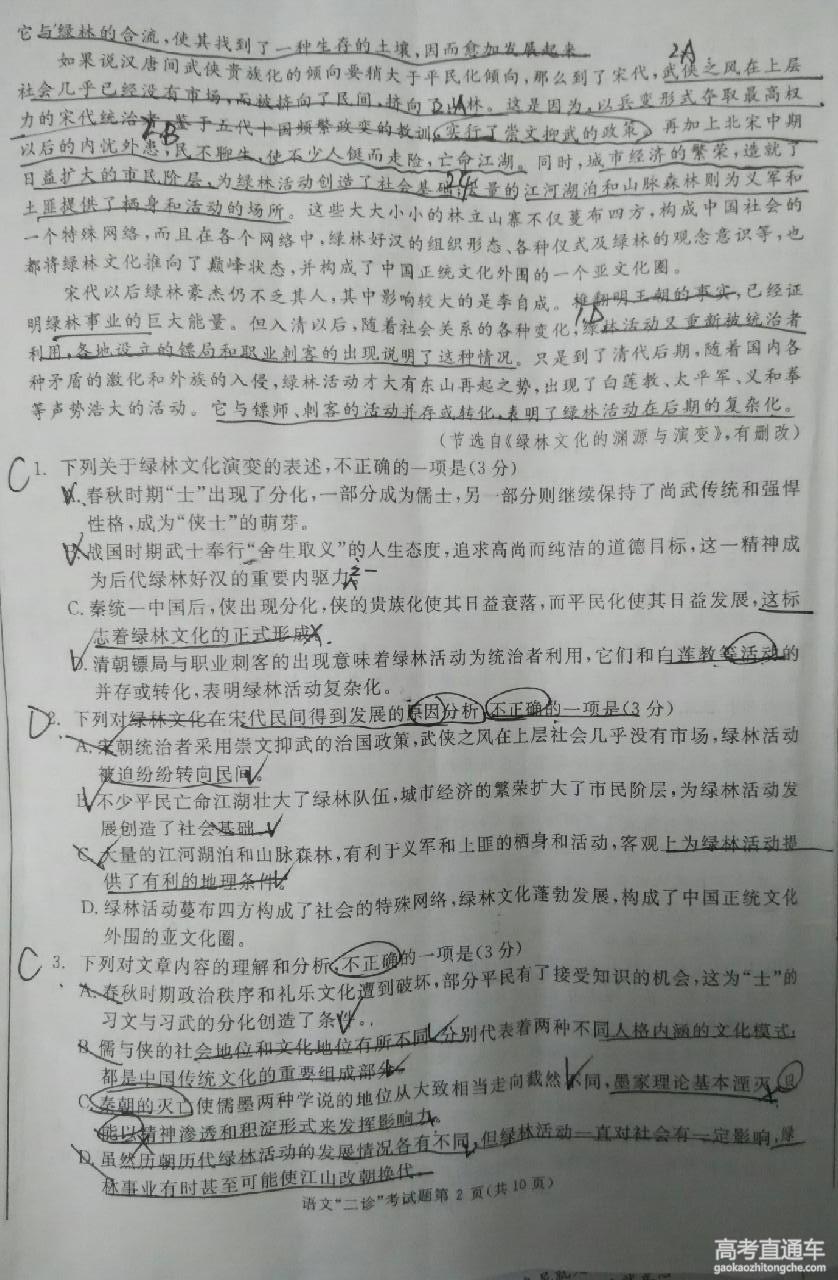 它与绿林的合流,使其找到了一种生存的土壤,因而愈加发展起来
如果说汉唐间武侠贵族化的倾向要稍大于平民化倾向,那么到了宋代,武侠之风在上层
2A
社会几乎已经没有市场,而被挤向了民间,挤向了山林。这是因为,以兵变形式夺取最高权
力的宋代统治者,鉴于五代十国频繁政变的教训,实行了崇文抑武的政策。再加上北宋中期
2B
以后的内忧外患,民不聊生,使不少人铤而走险,亡命江湖。同时,城市经济的繁荣,造就了
日益扩大的市民阶层,为绿林活动创造了社会基础,大量的江河湖泊和山脉森林则为义军和
土匪提供了栖身和活动的场所。这些大大小小的林立山寨不仅蔓布四方,构成中国社会的
一个特殊网络,而且在各个网络中,绿林好汉的组织形态、各种仪式及绿林的观念意识等,也
都将绿林文化推向了巅峰状态,并构成了中国正统文化外围的一个亚文化圈。
宋代以后绿林豪杰仍不乏其人,其中影响较大的是李自成。推翻明王朝的事实,已经证
明绿林事业的巨大能量。但入清以后,随着社会关系的各种变化,绿林活动又重新被统治者
利用,各地设立的镖局和职业刺客的出现说明了这种情况。只是到了清代后期,随着国内各
种矛盾的激化和外族的入侵,绿林活动才大有东山再起之势,出现了白莲教、太平军、义和拳
等声势浩大的活动。它与镖师、刺客的活动并存或转化,表明了绿林活动在后期的复杂化。
(节选自《绿林文化的渊源与演变》,有删改)
C 1. 下列关于绿林文化演变的表述,不正确的一项是(3分)
A. 春秋时期“士”出现了分化,一部分成为儒士,另一部分则继续保持了尚武传统和强悍
性格,成为“侠士”的萌芽。
B. 战国时期武士奉行“舍生取义”的人生态度,追求高尚而纯洁的道德目标,这一精神成
为后代绿林好汉的重要内驱力
C. 秦统一中国后,侠出现分化,侠的贵族化使其日益衰落,而平民化使其日益发展,这标
志着绿林文化的正式形成。
D. 清朝镖局与职业刺客的出现意味着绿林活动为统治者利用,它们和白莲教等活动的
并存或转化,表明绿林活动复杂化。
D 2. 下列对绿林文化在宋代民间得到发展的原因分析,不正确的一项是(3分)
A. 宋朝统治者采用崇文抑武的治国政策,武侠之风在上层社会几乎没有市场,绿林活动
被迫纷纷转向民间。
B. 不少平民亡命江湖壮大了绿林队伍,城市经济的繁荣扩大了市民阶层,为绿林活动发
展创造了社会基础。
C. 大量的江河湖泊和山脉森林,有利于义军和土匪的栖身和活动,客观上为绿林活动提
供了有利的地理条件。
D. 绿林活动蔓布四方构成了社会的特殊网络,绿林文化蓬勃发展,构成了中国正统文化
外围的亚文化圈。
C 3. 下列对文章内容的理解和分析,不正确的一项是(3分)
A. 春秋时期政治秩序和礼乐文化遭到破坏,部分平民有了接受知识的机会,这为“士”的
习文与习武的分化创造了条件。
B. 儒与侠的社会地位和文化地位有所不同,分别代表着两种不同人格内涵的文化模式,
都是中国传统文化的重要组成部分。
C. 秦朝的灭亡使儒墨两种学说的地位从大致相当走向截然不同,墨家理论基本湮灭,只
能以精神渗透和积淀形式来发挥影响力。
D. 虽然历朝历代绿林活动的发展情况各有不同,但绿林活动一直对社会有一定影响,绿
林事业有时甚至可能使江山改朝换代。
语文“二诊”考试题第2页(共10页)
高考直通车
gaokaozhitongche.com